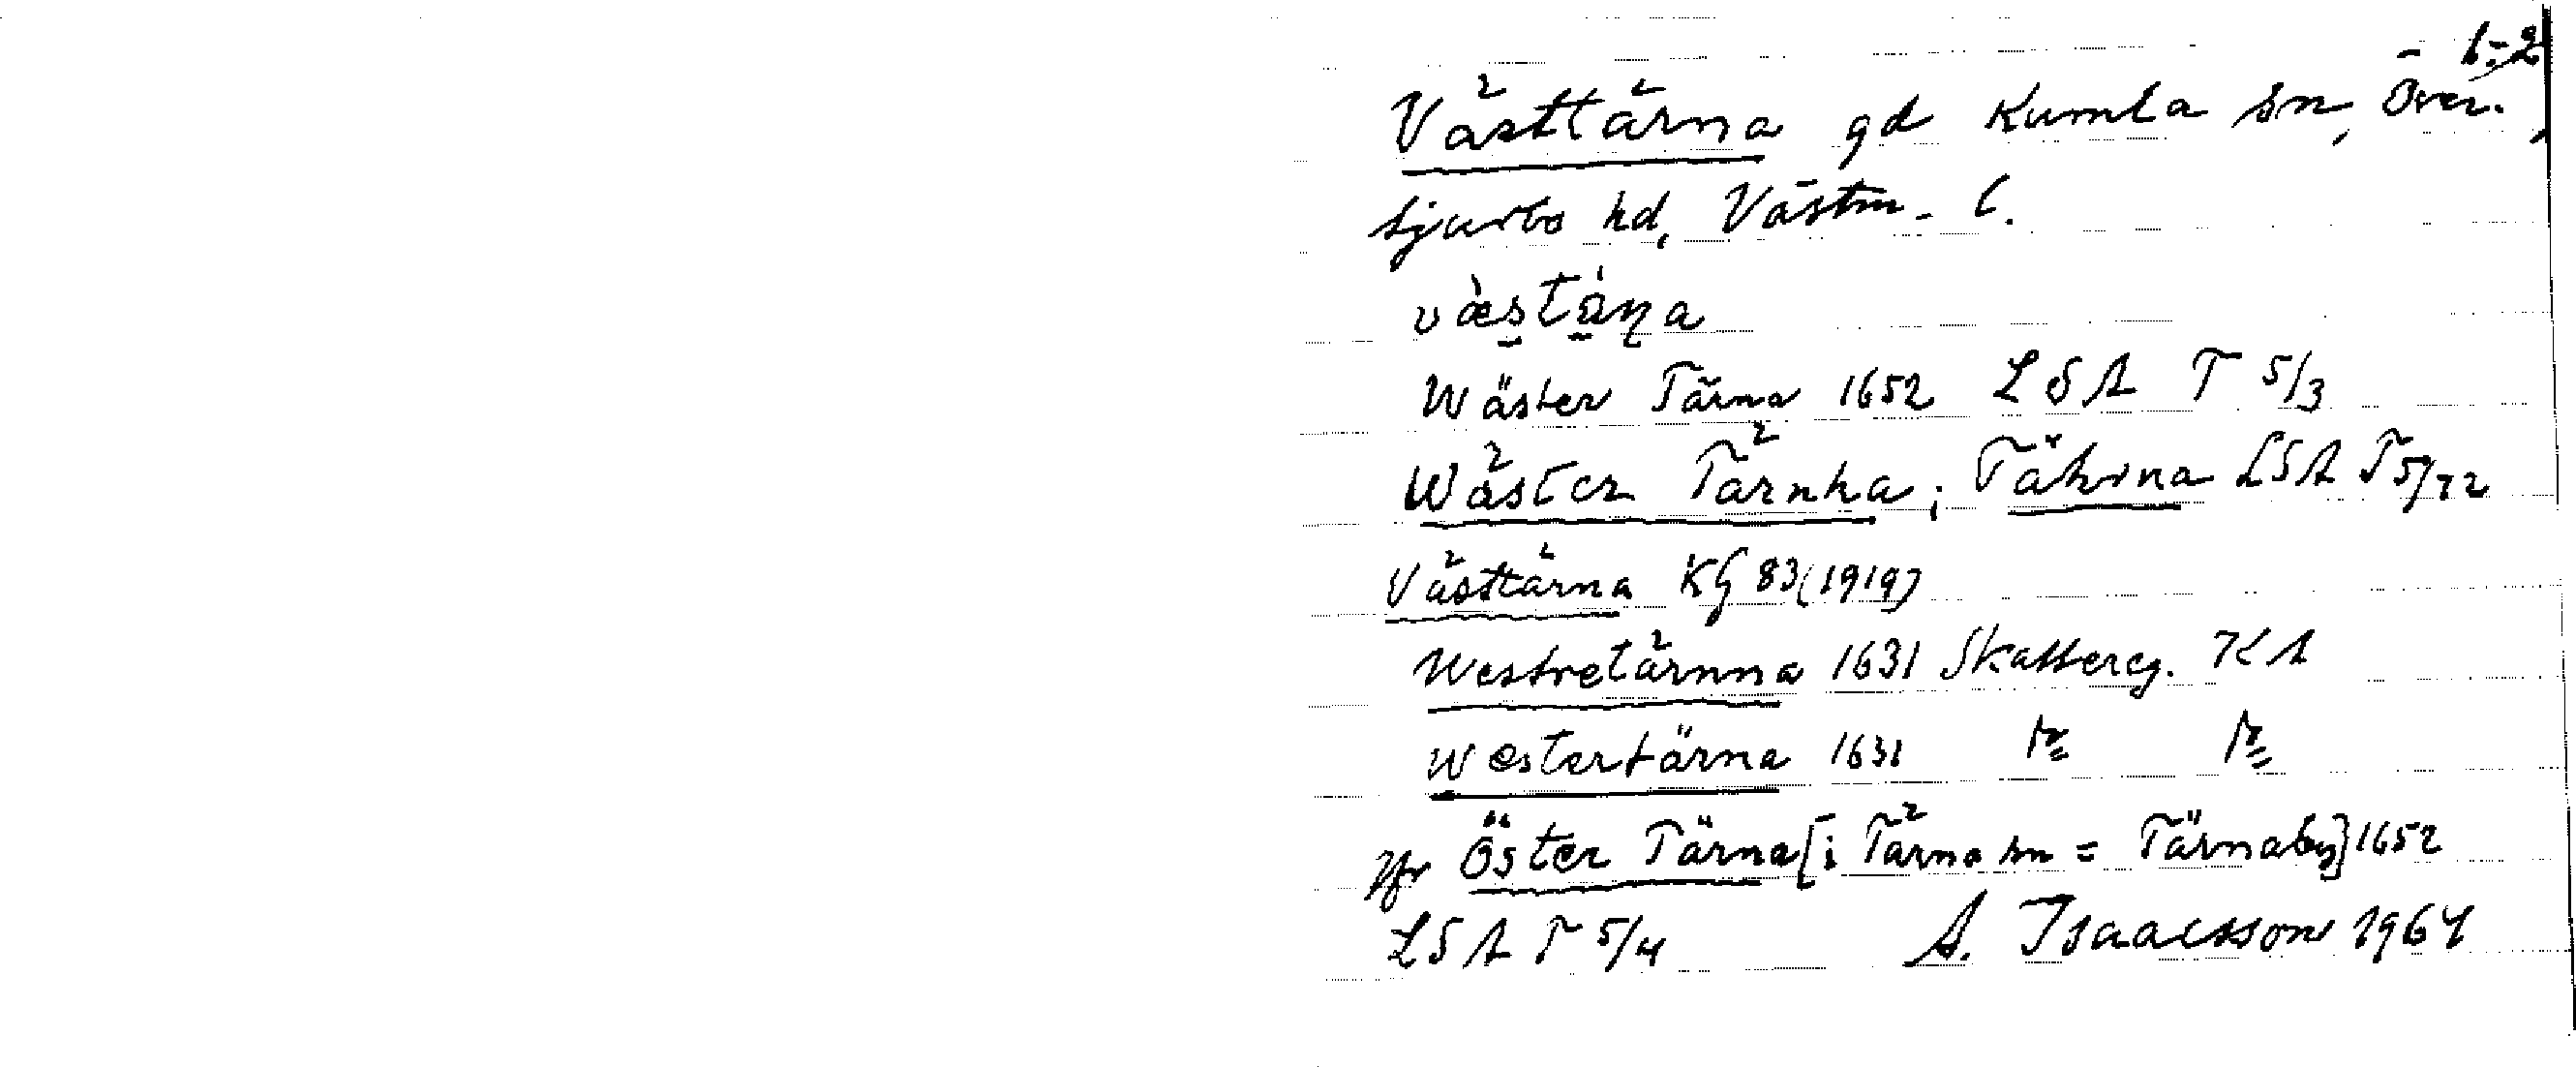 1-2
Västtärna gd Kumla sn, Över-
tjurbo hd, Västm. l.
Wäster Tärna 1652 LSA T 5/3
Wäster Tärnha; Tährna LSA T 5/72
Västtärna KG 83 (1919)
Westretärnna 1631 Skattereg. KA
Westertärna 1631
Jfr Öster Tärna [i Tärna sn = Tärnaby] 1652
LSA T 5/4 A. Isaacsson 1964